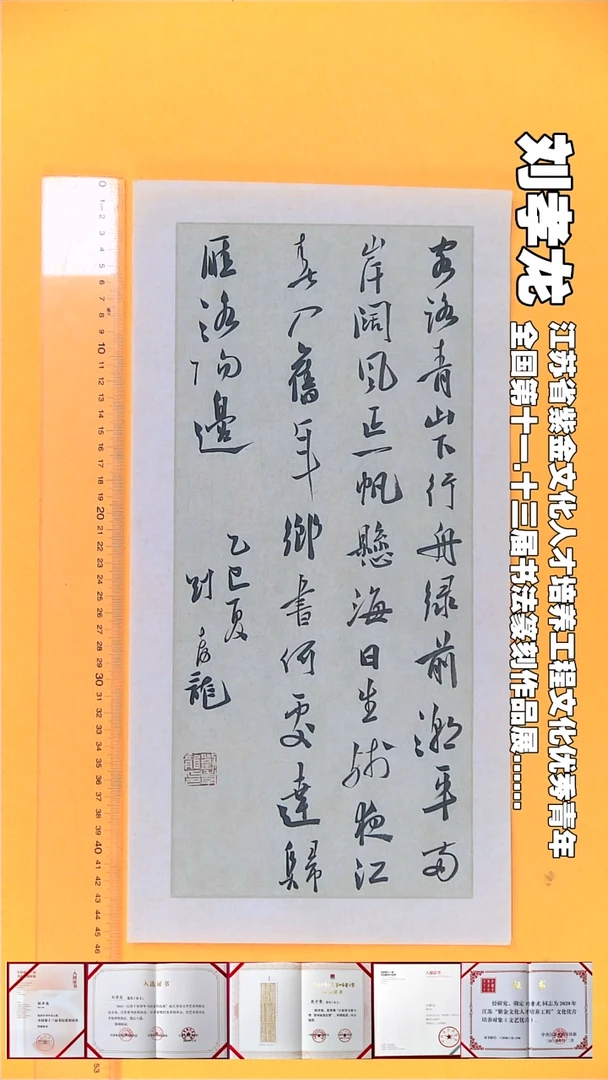 刘孝龙
江苏省紫金文化人才培养工程文化优秀青年
全国第十一.十三届书法篆刻作品展......
客路青山下行舟緑前潮平兩
岸闊風正一帆懸海日生殘夜江
春入舊年鄉書何處達歸
雁洛陽邊
乙巳夏
劉孝龍
0 1 2 3 4 5 6 7 8 9 10 11 12 13 14 15 16 17 18 19 20 21 22 23 24 25 26 27 28 29 30 31 32 33 34 35 36 37 38 39 40 41 42 43 44 45 46
53
入选证书
入选证书
入选证书
证书
经研究,确定刘孝龙同志为2020年
江苏“紫金文化人才培养工程”文化优青
培养对象(文艺优青)。